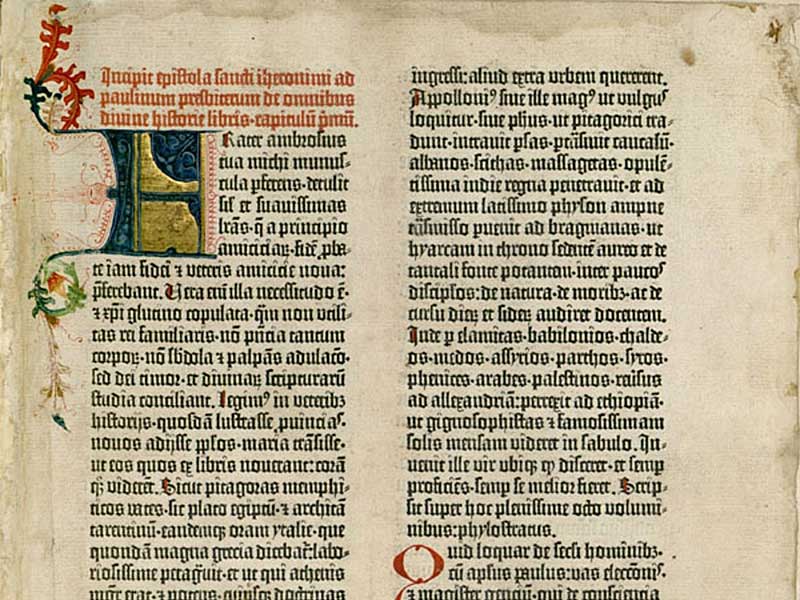 Incipit epistola sancti iheronimi ad
paulinum presbiterum de omnibus
divine historie libris. capitulū p̄mū.
Frater ambrosius
tua michi munus-
cula p̄ferens. detulit
sil̄ et suavissimas
lr̄as. q̄ a principio
amiciciaꝝ. fidē ꝓba-
te iam fidei ⁊ veteris amicicie noua:
p̄ferebant. Vera eni̅ illa necessitudo ē.
⁊ xp̄i glutino copulata. qm̄ non vtili-
tas rei familiaris. nō p̄ncia tantum
corpoꝝ. nō sb̄dola ⁊ palpās adulacō.
sed dei timor. et diuinaꝝ scripturarū
studia conciliant. Legimꝰ in veteribꝫ
historijs. quosdā lustrasse ꝓuinciaˢ.
nouos adijsse pp̄los. maria trāsisse.
ut eos quos ex libris nouerant: corā
qꝫ viderēt. Sicut pitagoras memphi-
ticos vates. sic plato egiptū. ⁊ architā
tarentinū. eandemqꝫ oram ytalie. que
quondā magna grecia dicebat̄: labo-
riosissime peragͣuit. et ut qui athenis
mgr̄ erat. ⁊ potens. cuiusqꝫ doctrinas
ingressi: aliud extra urbem quererent.
Appolloniꝰ siue ille magꝰ ut vulgꝰ
loquitur. siue ph̄us. ut pitagorici tra-
dunt. intrauit ꝑsas. ꝑtrāsiuit caucasū.
albanos. scithas. massagetas. opulē-
tissima indie regna penetrauit. et ad
extremum latissimo physon ampne
trāsmisso puenit ad bragmanas. ut
hyarcam in throno sedentē aureo et de
tantali fonte potantem. inter paucoˢ
discipl̄os: de natura. de moribꝫ. ac de
cursu dieꝝ et sideꝝ audiret docentem.
Inde ꝑ elamitas. babilonios. chalde-
os. medos. assyrios. parthos. syros.
phenices. arabes. palestinos. reuersus
ad allexandriā: perrexit ad ethiopiā.
ut gignosophistas ⁊ famosissimam
solis mensam videret in sabulo. In-
uenit ille vir vbiqꝫ qd̄ disceret. et semꝑ
proficiēs. semꝑ se melior fieret. Scrip-
sit super hoc plenissime octo volumi-
nibus: phylostratus.
Quid loquar de secli hominibꝫ.
cū apl̄us paulus: vas electōnis.
⁊ magister genciū. qui de consciencia